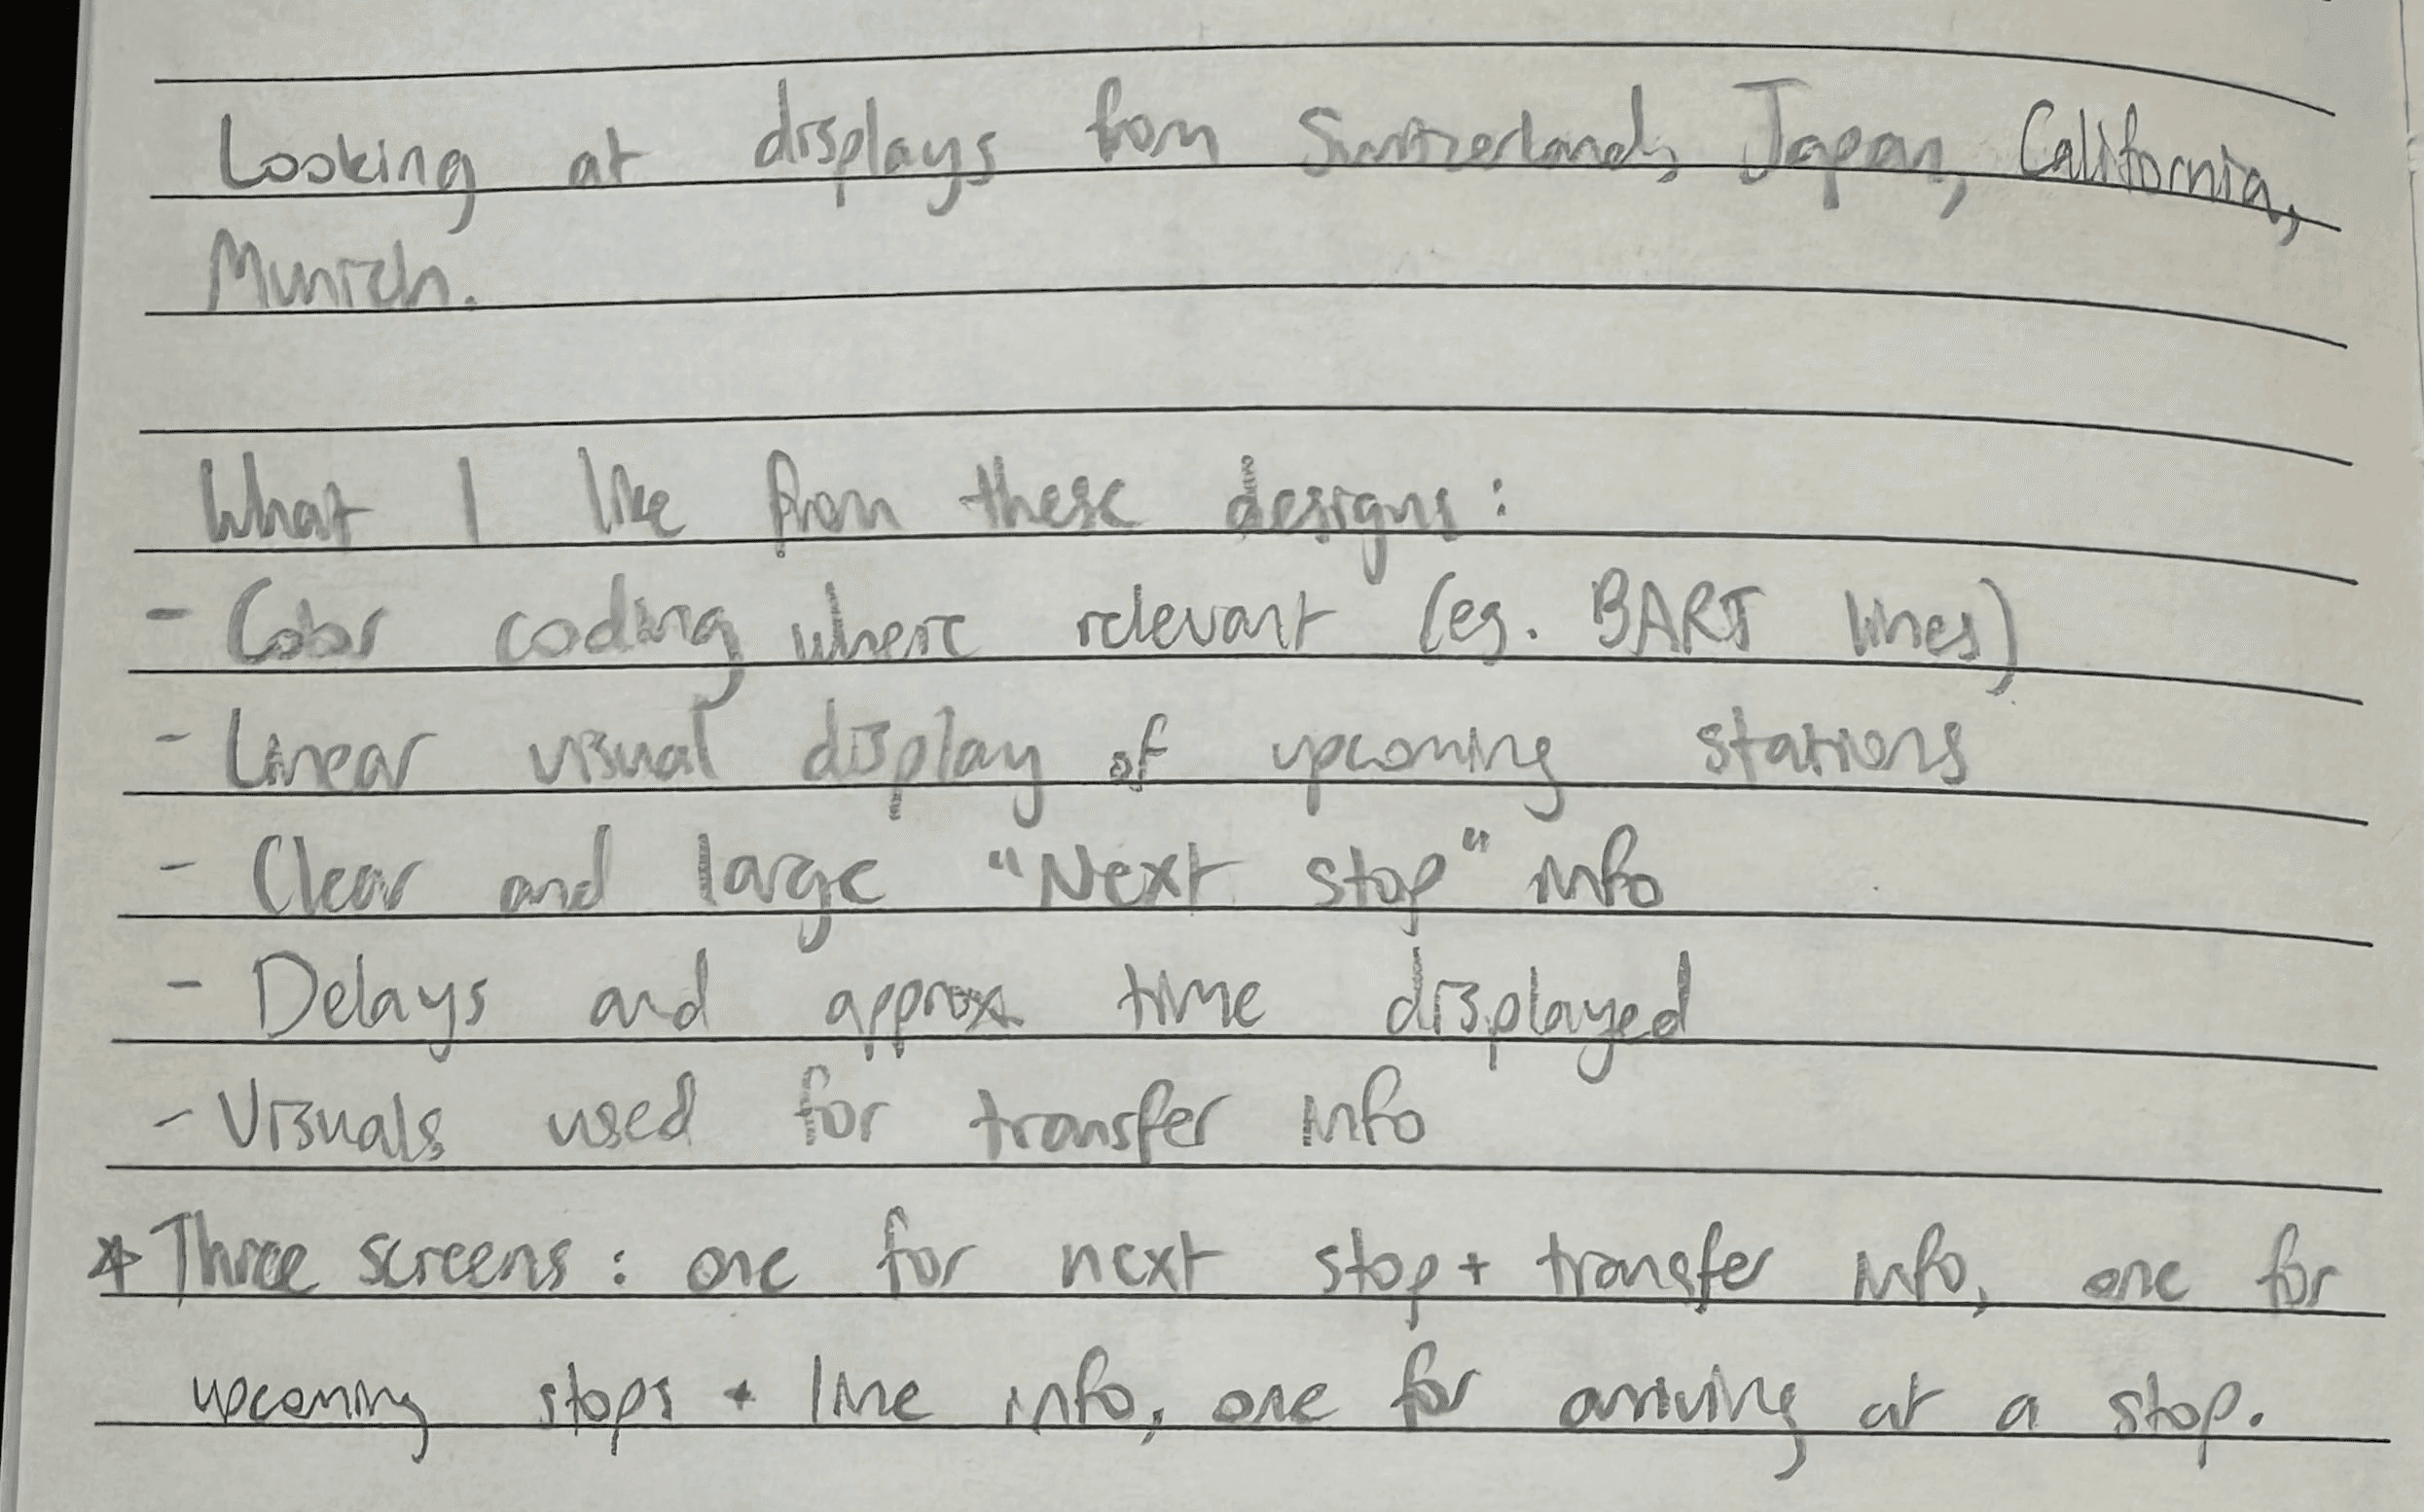 Looking at displays from Switzerland, Japan, California,
Munich.
What I like from these designs:
- Color coding where relevant (eg. BART lines)
- Linear visual display of upcoming stations
- Clear and large "Next stop" info
- Delays and approx time displayed
- Visuals used for transfer info
* Three screens: one for next stop + transfer info, one for
upcoming stops + line info, one for arriving at a stop.